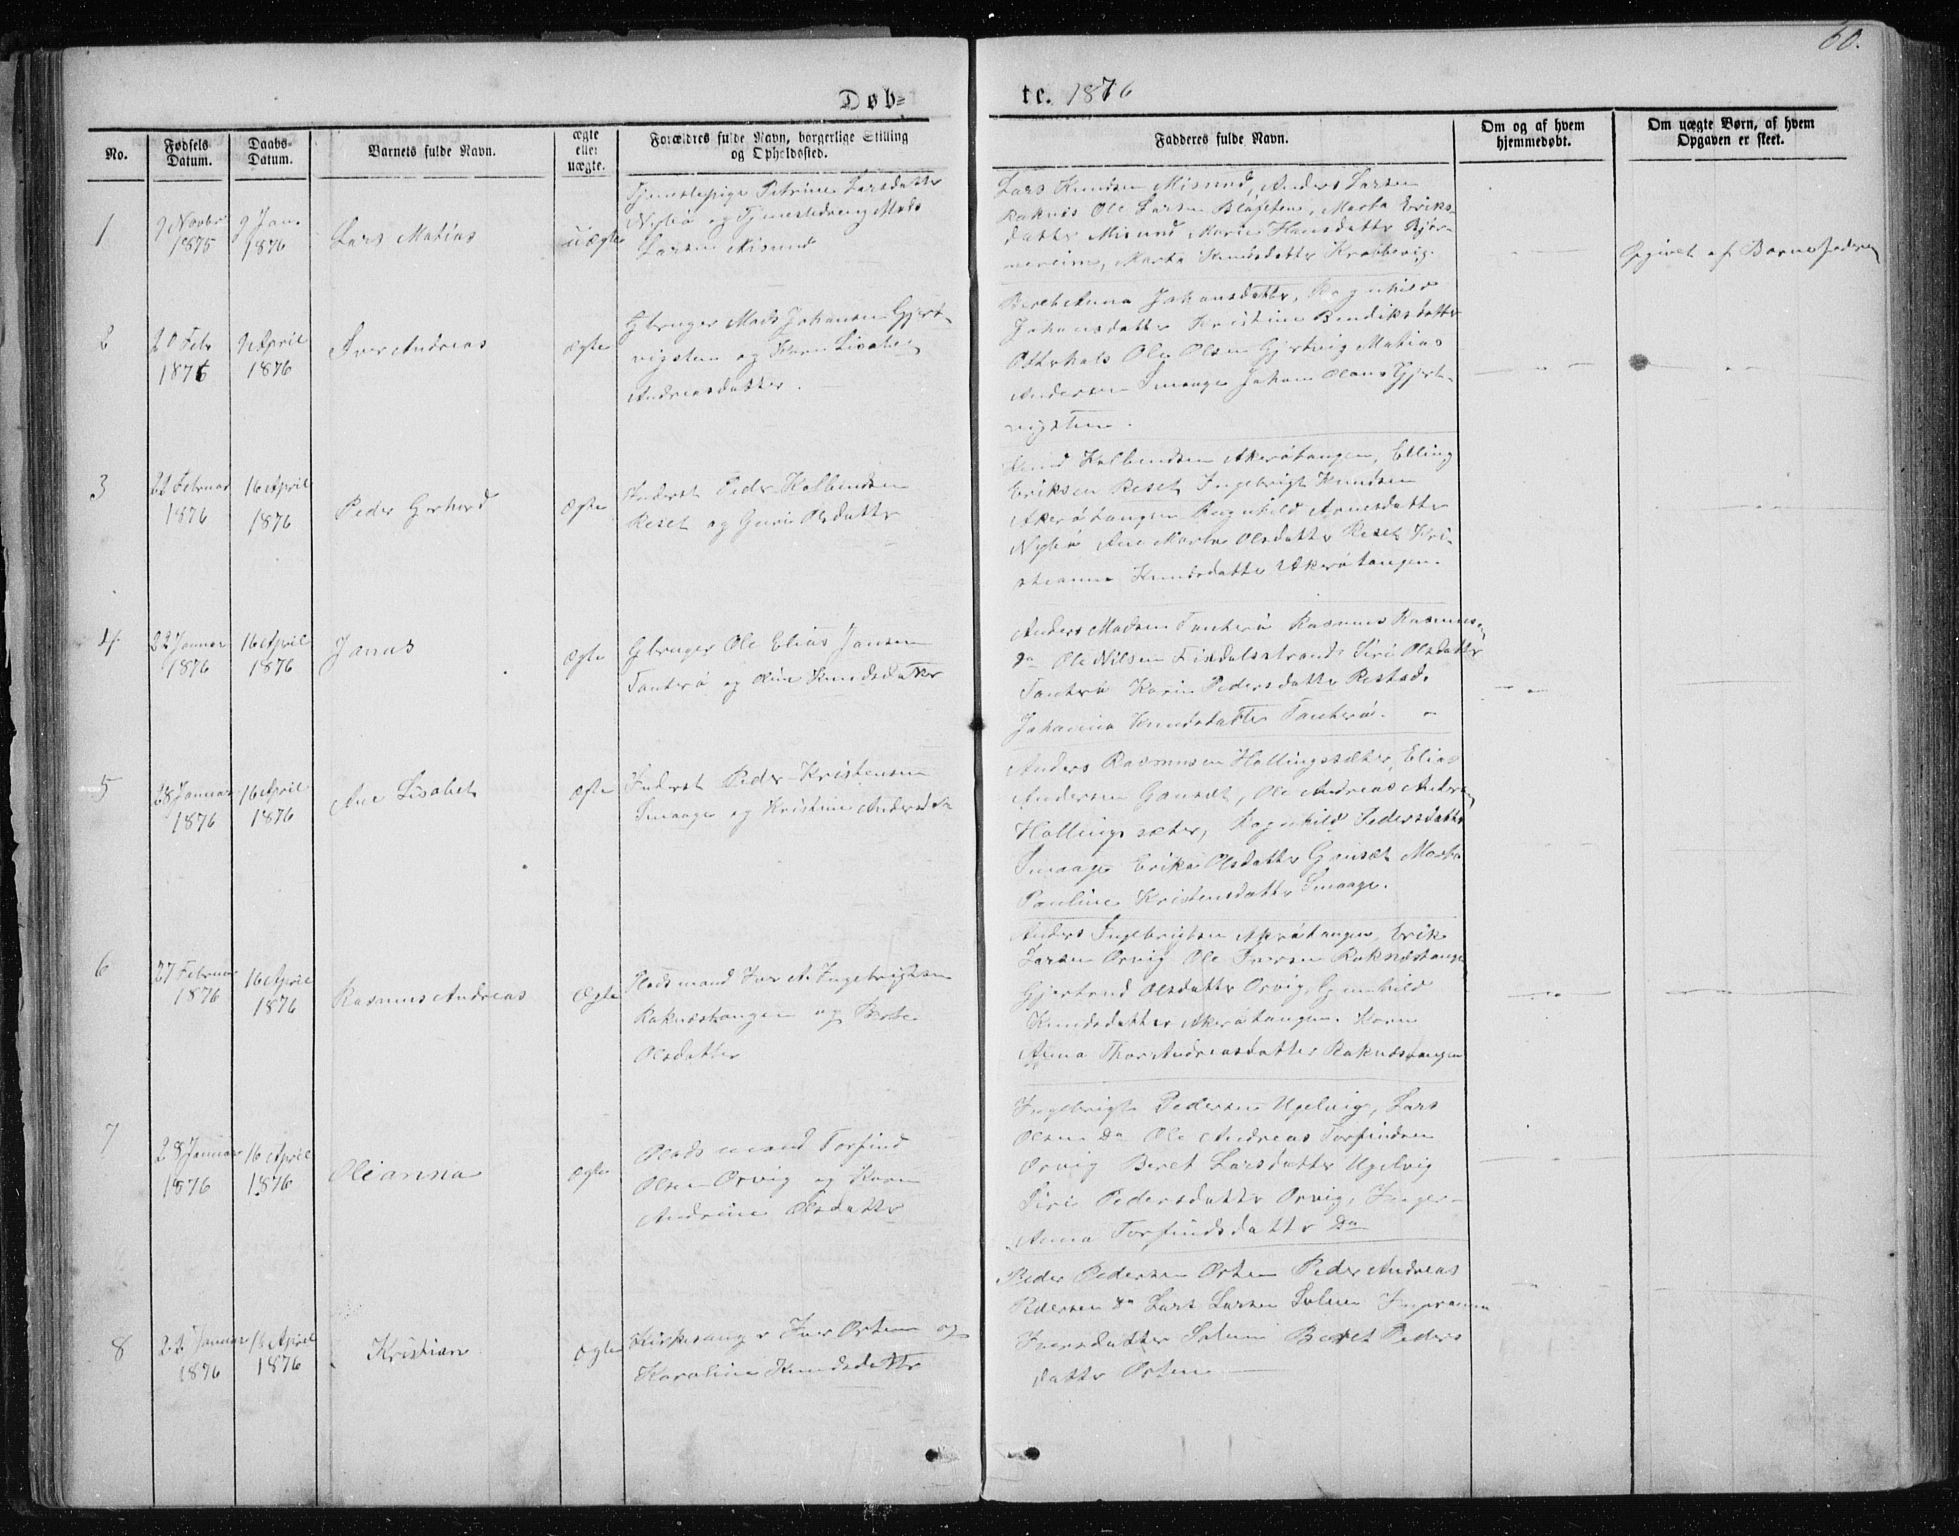 60.
Døb=
te. 1876
No.
Fødsels Datum.
Daabs-Datum.
Barnets fulde Navn.
ægte eller uægte.
Forældres fulde Navn, borgerlige Stilling og Opholdssted.
Fadderes fulde Navn.
Om og af hvem hjemmedøbt.
Om uægte Børn, af hvem Opgaven er skeet.
1
9 Novbr 1875
9 Jan 1876
Lars Matias
uægte
Tjenestepige Petrine Larsdatter
Nybø og Tjenestedreng Mads
Larsen Misund
Lars Knudsen Misund, Anders Larsen
Raknes Ole Larsen Marta Eriks-
datter Misund Marie Hansdatter Bjør-
nereim, Marta Knudsdatter Krabbevig.
Opgivet af Barnefaderen
2
20 Feb 1876
9 April 1876
Iver Andreas
ægte
Gbruger Mads Johansen Gjert-
vigsten og Karen Lisabet
Andreasdatter.
Beret Anna Johansdatter, Ragnhild
Johansdatter Kristine Bendiksdatter
Otterhals Ole Olsen Gjertvig Matias
Andersen Smaage Johan Olaus Gjert-
vigsten.
3
22 Februar 1876
16 April 1876
Peder Gerhard
ægte
Inderst Peder Kolbendsen
Reset og Guri Olsdatter
Knud Kolbendsen Akerøtangen, Elling
Eriksen Reset Ingebrigt Knudsen
Akerøtangen Ragnhild Arnesdatter
Nybø Ane Marta Olsdatter Reset Kri-
stianna Knudsdatter Akerøtangen.
4
22 Januar 1876
16 April 1876
Jonas
ægte
Gbruger Ole Elias Jansen
Tanterø og Oline Knudsdatter
Anders Madsen Tanterø Rasmus Rasmusen
Do Ole Nilsen Siri Olsdatter
Tanterø Karen Pedersdatter Restad.
Johanna Knudsdatter Tanterø.
5
28 Januar 1876
16 April 1876
Ane Lisabet
ægte
Inderst Peder Kristensen
Smaage og Kristine Andersdt
Anders Rasmusen Hollingsæter, Elias
Andersen Gønset, Ole Andreas Andersen
Hollingsæter, Ragnhild Pedersdatter
Smaage Erika Olsdatter Gønset Marta
Pauline Kristensdatter Smaage.
6
27 Februar 1876
16 April 1876
Rasmus Andreas
ægte
Pladsmand Iver A. Ingebrigtsen
Raknestangen og Berte
Olsdatter
Anders Ingebrigtsen Akerøtangen, Erik
Larsen Orvig Ole Iversen Raknestangen
Gjertrud Olsdatter Orvig, Gunhild
Knudsdatter Akerøtangen. Karen
Anna Thor Andreasdatter Raknestangen
7
28 Januar 1876
16 April 1876
Olianna
ægte
Pladsmand Torfind
Olsen Orvig og Karen
Andrine Olsdatter
Ingebrigt Pedersen Ugelvig, Lars
Olsen Do Ole Andreas Torfindsen
Orvig Beret Larsdatter Ugelvig
Siri Pedersdatter Orvig, Inger-
Anna Torfindsdatter Do
8
22 Januar 1876
16 April 1876
Kristian
ægte
Kirkesanger Iver Orten og
Karoline Knudsdatter
Peder Pedersen Orten Peder Andreas
Pedersen Do Lars Larsen Solem Ingeranna
Iversdatter Solem Beret Peders
datter Orten